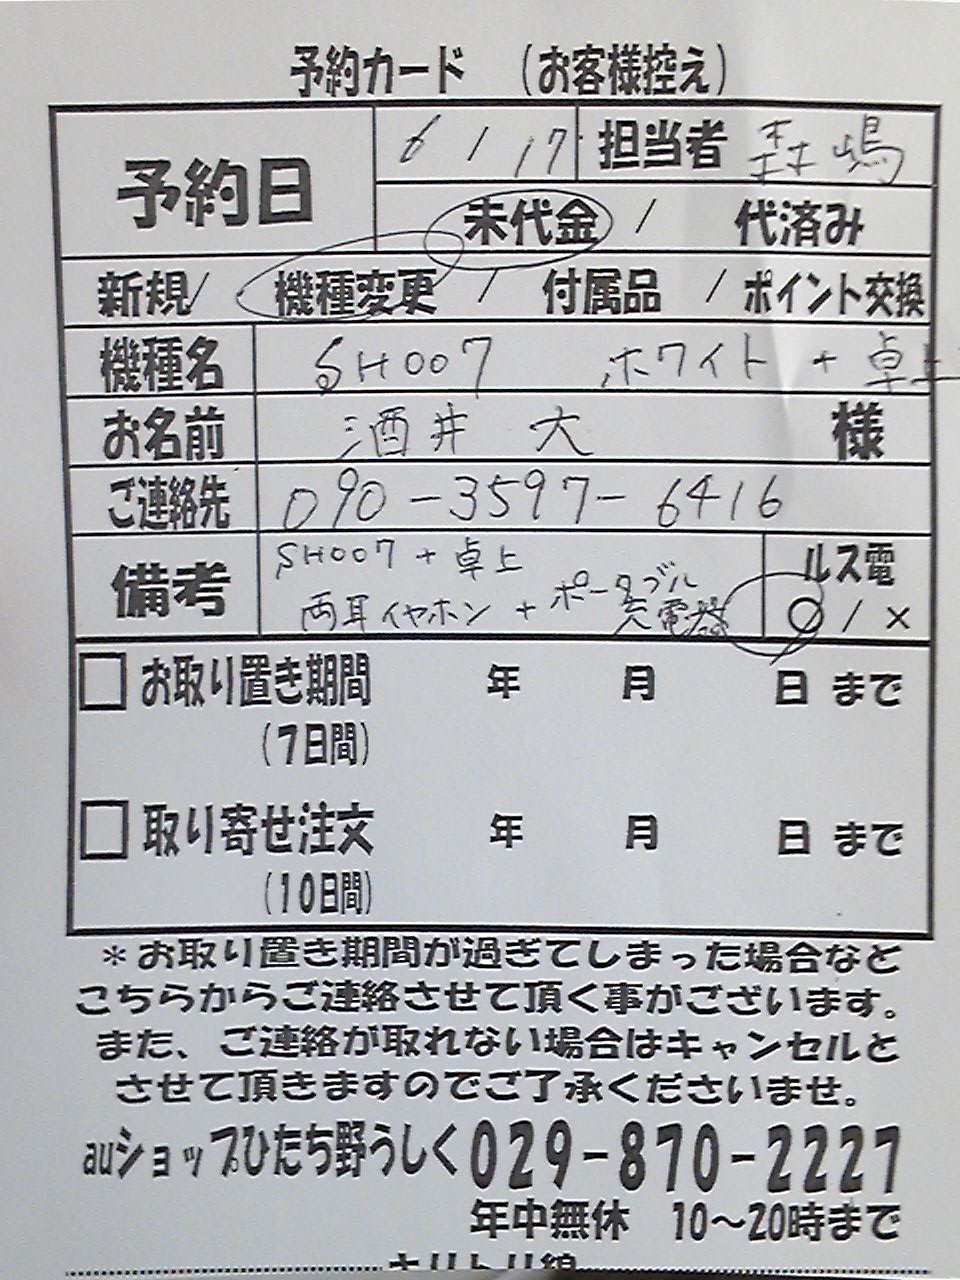 予約カード （お客様控え）
予約日 6 / 17 担当者 森嶋
未代金 / 代済み
新規 / 機種変更 / 付属品 / ポイント交換
機種名 SH007 ホワイト + 卓上
お名前 酒井 大 様
ご連絡先 090-3597-6416
備考 SH007 + 卓上
両耳イヤホン + ポータブル充電器
ルス電
○ / ×
□ お取り置き期間 年 月 日 まで
(7日間)
□ 取り寄せ注文 年 月 日 まで
(10日間)
＊お取り置き期間が過ぎてしまった場合など
こちらからご連絡させて頂く事がございます。
また、ご連絡が取れない場合はキャンセルと
させて頂きますのでご了承くださいませ。
auショップひたち野うしく 029-870-2227
年中無休 10～20時まで
キリトリ線